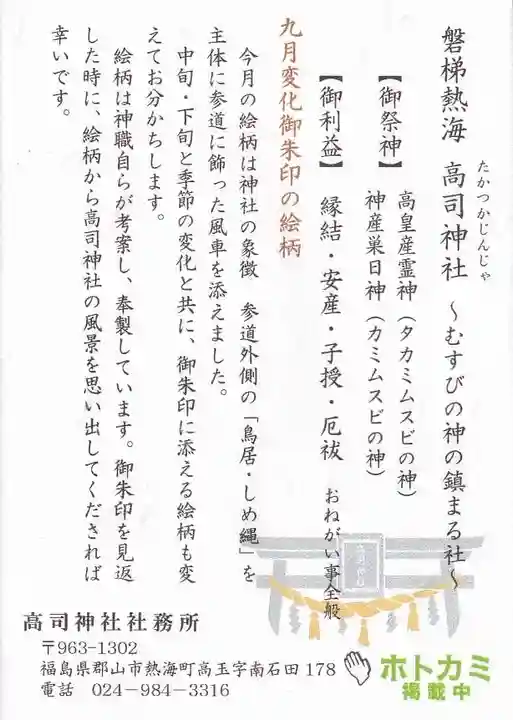 磐梯熱海 高司神社 ～むすびの神の鎮まる社～
たかつかじんじゃ
【御祭神】 高皇産霊神(タカミムスビの神)
神産巣日神(カミムスビの神)
【御利益】 縁結・安産・子授・厄祓 おねがい事全般
九月変化御朱印の絵柄
今月の絵柄は神社の象徴 参道外側の「鳥居・しめ縄」を
主体に参道に飾った風車を添えました。
中旬・下旬と季節の変化と共に、御朱印に添える絵柄も変
えてお分かちします。
絵柄は神職自らが考案し、奉製しています。御朱印を見返
した時に、絵柄から高司神社の風景を思い出してくだされば
幸いです。
高司神社
高司神社社務所
〒963-1302
福島県郡山市熱海町高玉字南石田178
電話 024-984-3316
ホトカミ
掲載中